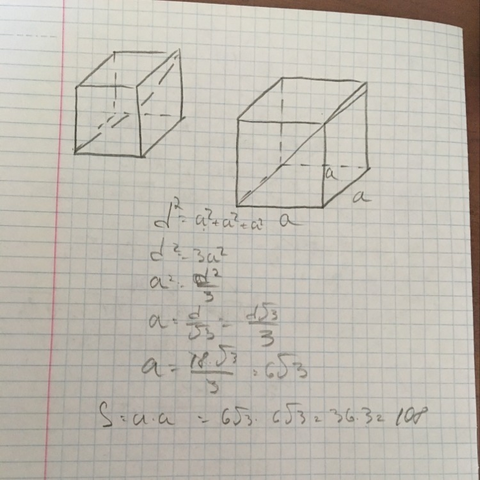 a
a
a
d² = a² + a² + a²
d² = 3a²
a² = d²/3
a = d/√3 = d√3/3
a = 18·√3/3 = 6√3
S = a·a = 6√3 · 6√3 = 36·3 = 108